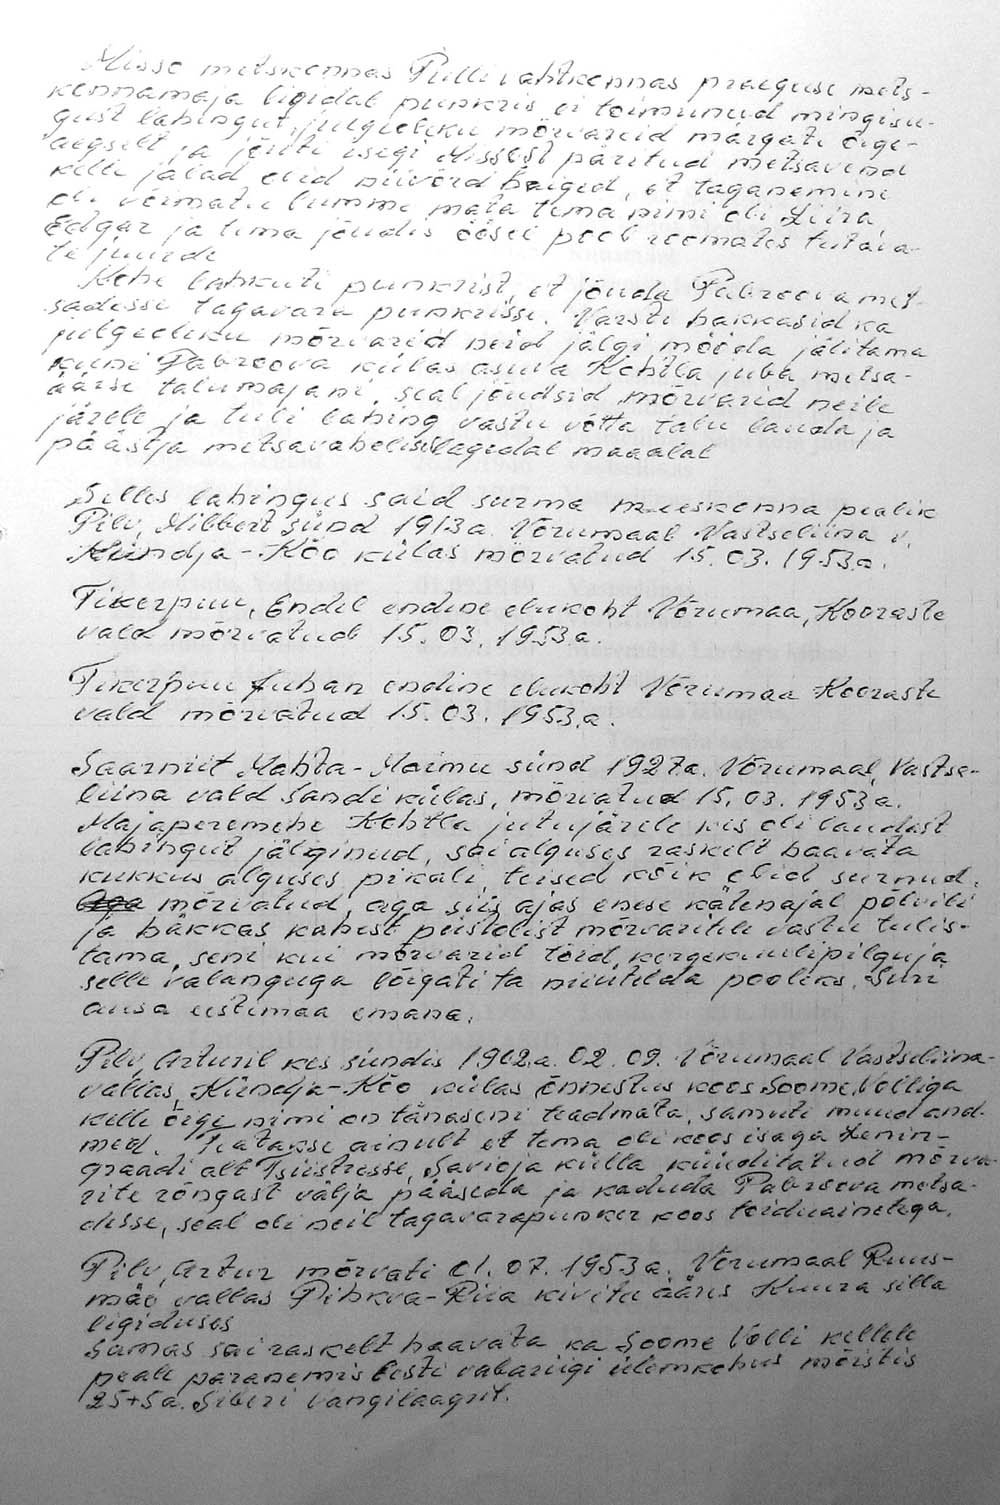 Misso metskonnas Pulli vahtkonnas praeguse mets-
konnamaja ligidal punkris ei toimunud mingisu-
gust lahingut, julgeoleku mõrvarid märgati õige-
aegselt ja jõuti isegi Missost päritud metsavend
kelle jalad olid niivõrd haiged, et taganemine
oli võimatu lumme mata tema nimi oli Liira
Edgar ja tema jõudis öösel poolroomates tuttava-
te juurde
Kohe lahkuti punkrist, et jõuda Pabroova met-
sadesse tagavara punkrisse. Varsti hakkasid ka
julgeoleku mõrvarid neid jälgi mööda jälitama
kuni Pabroova külas asuva Kohtla juba metsa-
äärse talumajani, seal jõudsid mõrvarid neile
järele ja tuli lahing vastu võtta talu lauda ja
päästja metsavahelisel lagedal maaalal
Selles lahingus said surma meeskonna pealik
Pilv, Hilbert sünd 1913a. Võrumaal Vastseliina v.
Kündja-Kõo külas mõrvatud 15.03.1953.a.
Tikerpuu, Endel endine elukoht Võrumaa, Kooraste
vald mõrvatud 15.03.1953a.
Tikerpuu Juhan endine elukoht Võrumaa Kooraste
vald mõrvatud 15.03.1953.a.
Saarniit Mahta-Maimu sünd 1927a. Võrumaal, Vastse-
liina vald Sandi külas, mõrvatud 15.03.1953a.
Majaperemehe Kohtla jutujärele kes oli laudast
lahingut jälginud, sai alguses raskelt haavata
kukkus alguses pikali, teised kõik olid surnud.
Aga mõrvatud, aga siis ajas enese kätenajal põlvili
ja hakkas kahest püstolist mõrvaritele vastu tulis-
tama, seni kui mõrvarid tõid, kergekuulipilduja
selle valanguga lõigati ta niiütelda pooleks. Suri
ausa eestimaa emana.
Pilv, Arturil kes sündis 1902.a. 02.09. Võrumaal Vastseliina-
vallas, Kündja-Kõo külas õnnestus koos Soome Volliga
kelle õige nimi on tänaseni teadmata, samuti muud and-
med. Teatakse ainult et tema oli koos isaga Lenin-
graadi alt Tsiistresse, Savioja külla küüditatud mõrva-
rite rõngast välja pääseda ja kaduda Pabroova metsa-
desse, seal oli neil tagavarapunker koos toiduainetega.
Pilv, Artur mõrvati 01.07.1953a. Võrumaal Ruus-
mäe vallas Pihkva-Riia kivitee ääres Kuura silla
ligiduses
Samas sai raskelt haavata ka Soome Volli kellele
peale paranemist Eesti vabariigi ülemkohus mõistis
25+5a. Siberi vangilaagrit.